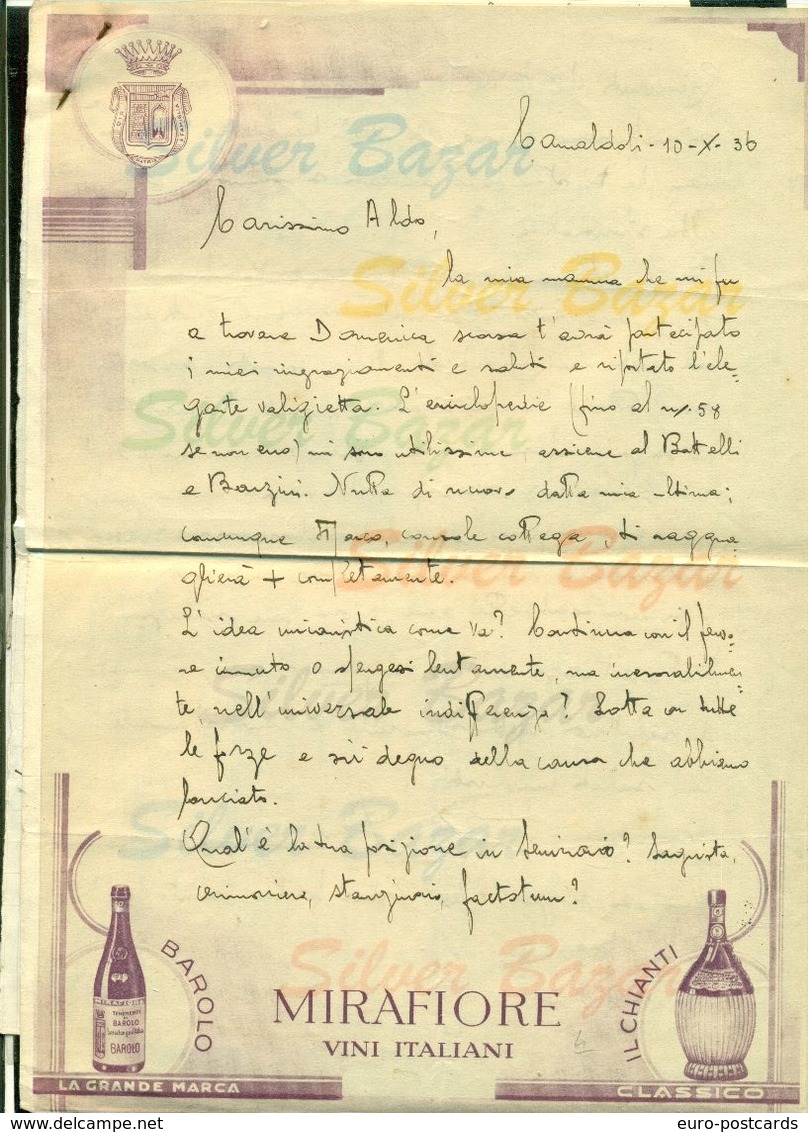 Camaldoli - 10 - X - 36
Carissimo Aldo,
la mia mamma che mi fu
a trovare Domenica scorsa t'avrà partecipato
i miei ringraziamenti e saluti e riportato l'ele-
gante valigietta. L'enciclopedie (fino al n/. 58
se non erro) mi sono utilissime, assieme al Battelli
e Barzini. Nulla di nuovo dalla mia ultima;
comunque Marco, console collega, ti raggua-
glierà + completamente.
L'idea unionistica come va? Continua con il fervo-
re o spengesi lentamente, ma inesorabilmen-
te, nell'universale indifferenza? Lotta con tutte
le forze e sii degno della causa che abbiamo
lanciato.
Qual'è la tua posizione in Seminario? Sagrista,
cerimoniere, stanzinaio, factotum?
Silver Bazar
Silver Bazar
Silver Bazar
Silver Bazar
Silver Bazar
Silver Bazar
Silver Bazar
BAROLO
MIRAFIORE
BAROLO
BAROLO
MIRAFIORE
VINI ITALIANI
IL CHIANTI
LA GRANDE MARCA
CLASSICO
euro-postcards